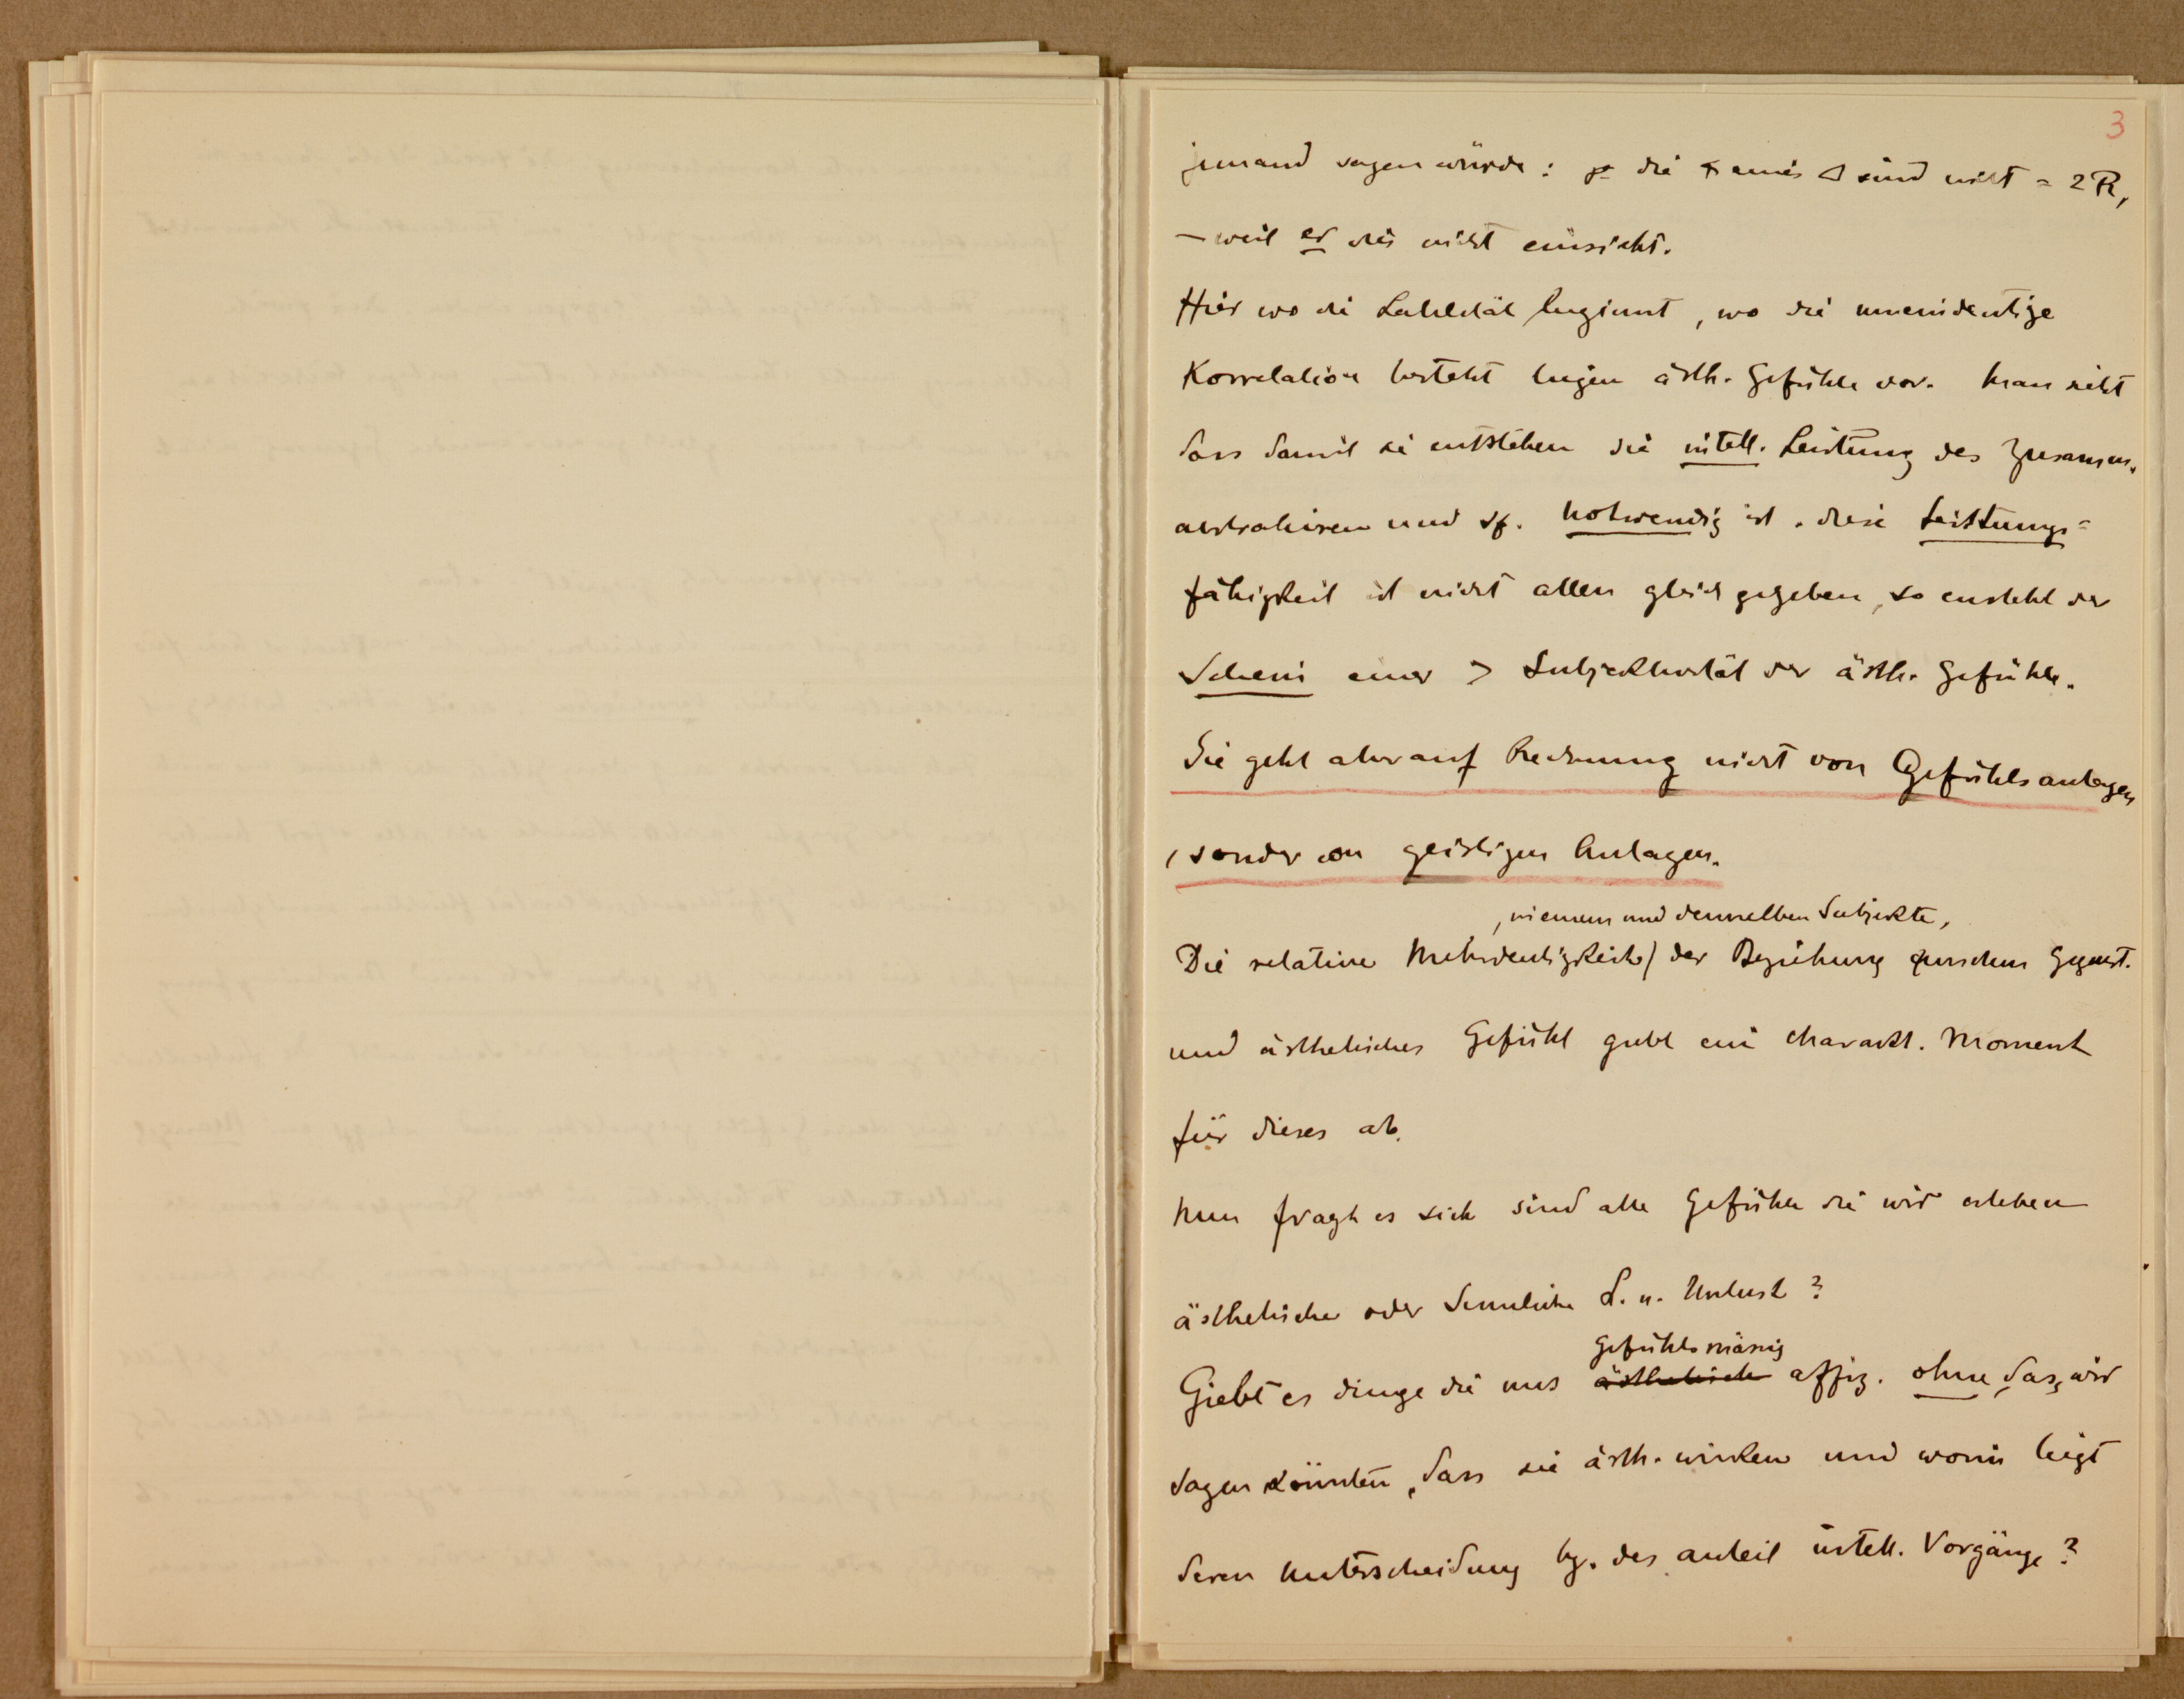 3
jemand sagen würde: die ∢ eines △ sind nicht = 2 R,
– weil er dies nicht einsieht.
Hier wo die Labilität beginnt, wo die uneindeutige
Korrelation besteht liegen ästh. Gefühle vor. Man sieht
dass damit sie entstehen die intell. Leistung des Zusammen-
abstrahieren und notwendig ist. diese Leistungs=
fähigkeit ist nicht allen gleich gegeben, so ensteht der
Schein einer > Subjektivität der ästh. Gefühle.
Sie geht aber auf Rechnung nicht von Gefühlsanlagen
, sonder von geistigen Anlagen.
, in einem und demselben Subjekte,
Die relative Mehrdeutigkeit der Beziehung zwischen Gegenst.
und ästhetisches Gefühl giebt ein charackt. Moment
für dieses ab.
Nun fragt es sich sind alle Gefühle die wir erleben
ästhetische oder Sinnliche L. u. Unlust?
gefühlsmässig
Giebt es dinge die uns ästhetisch affiz. ohne, dass wir
sagen könnten, dass sie ästh. wirken und worin liegt
deren Unterscheidung bz. des anteil intell. Vorgänge?